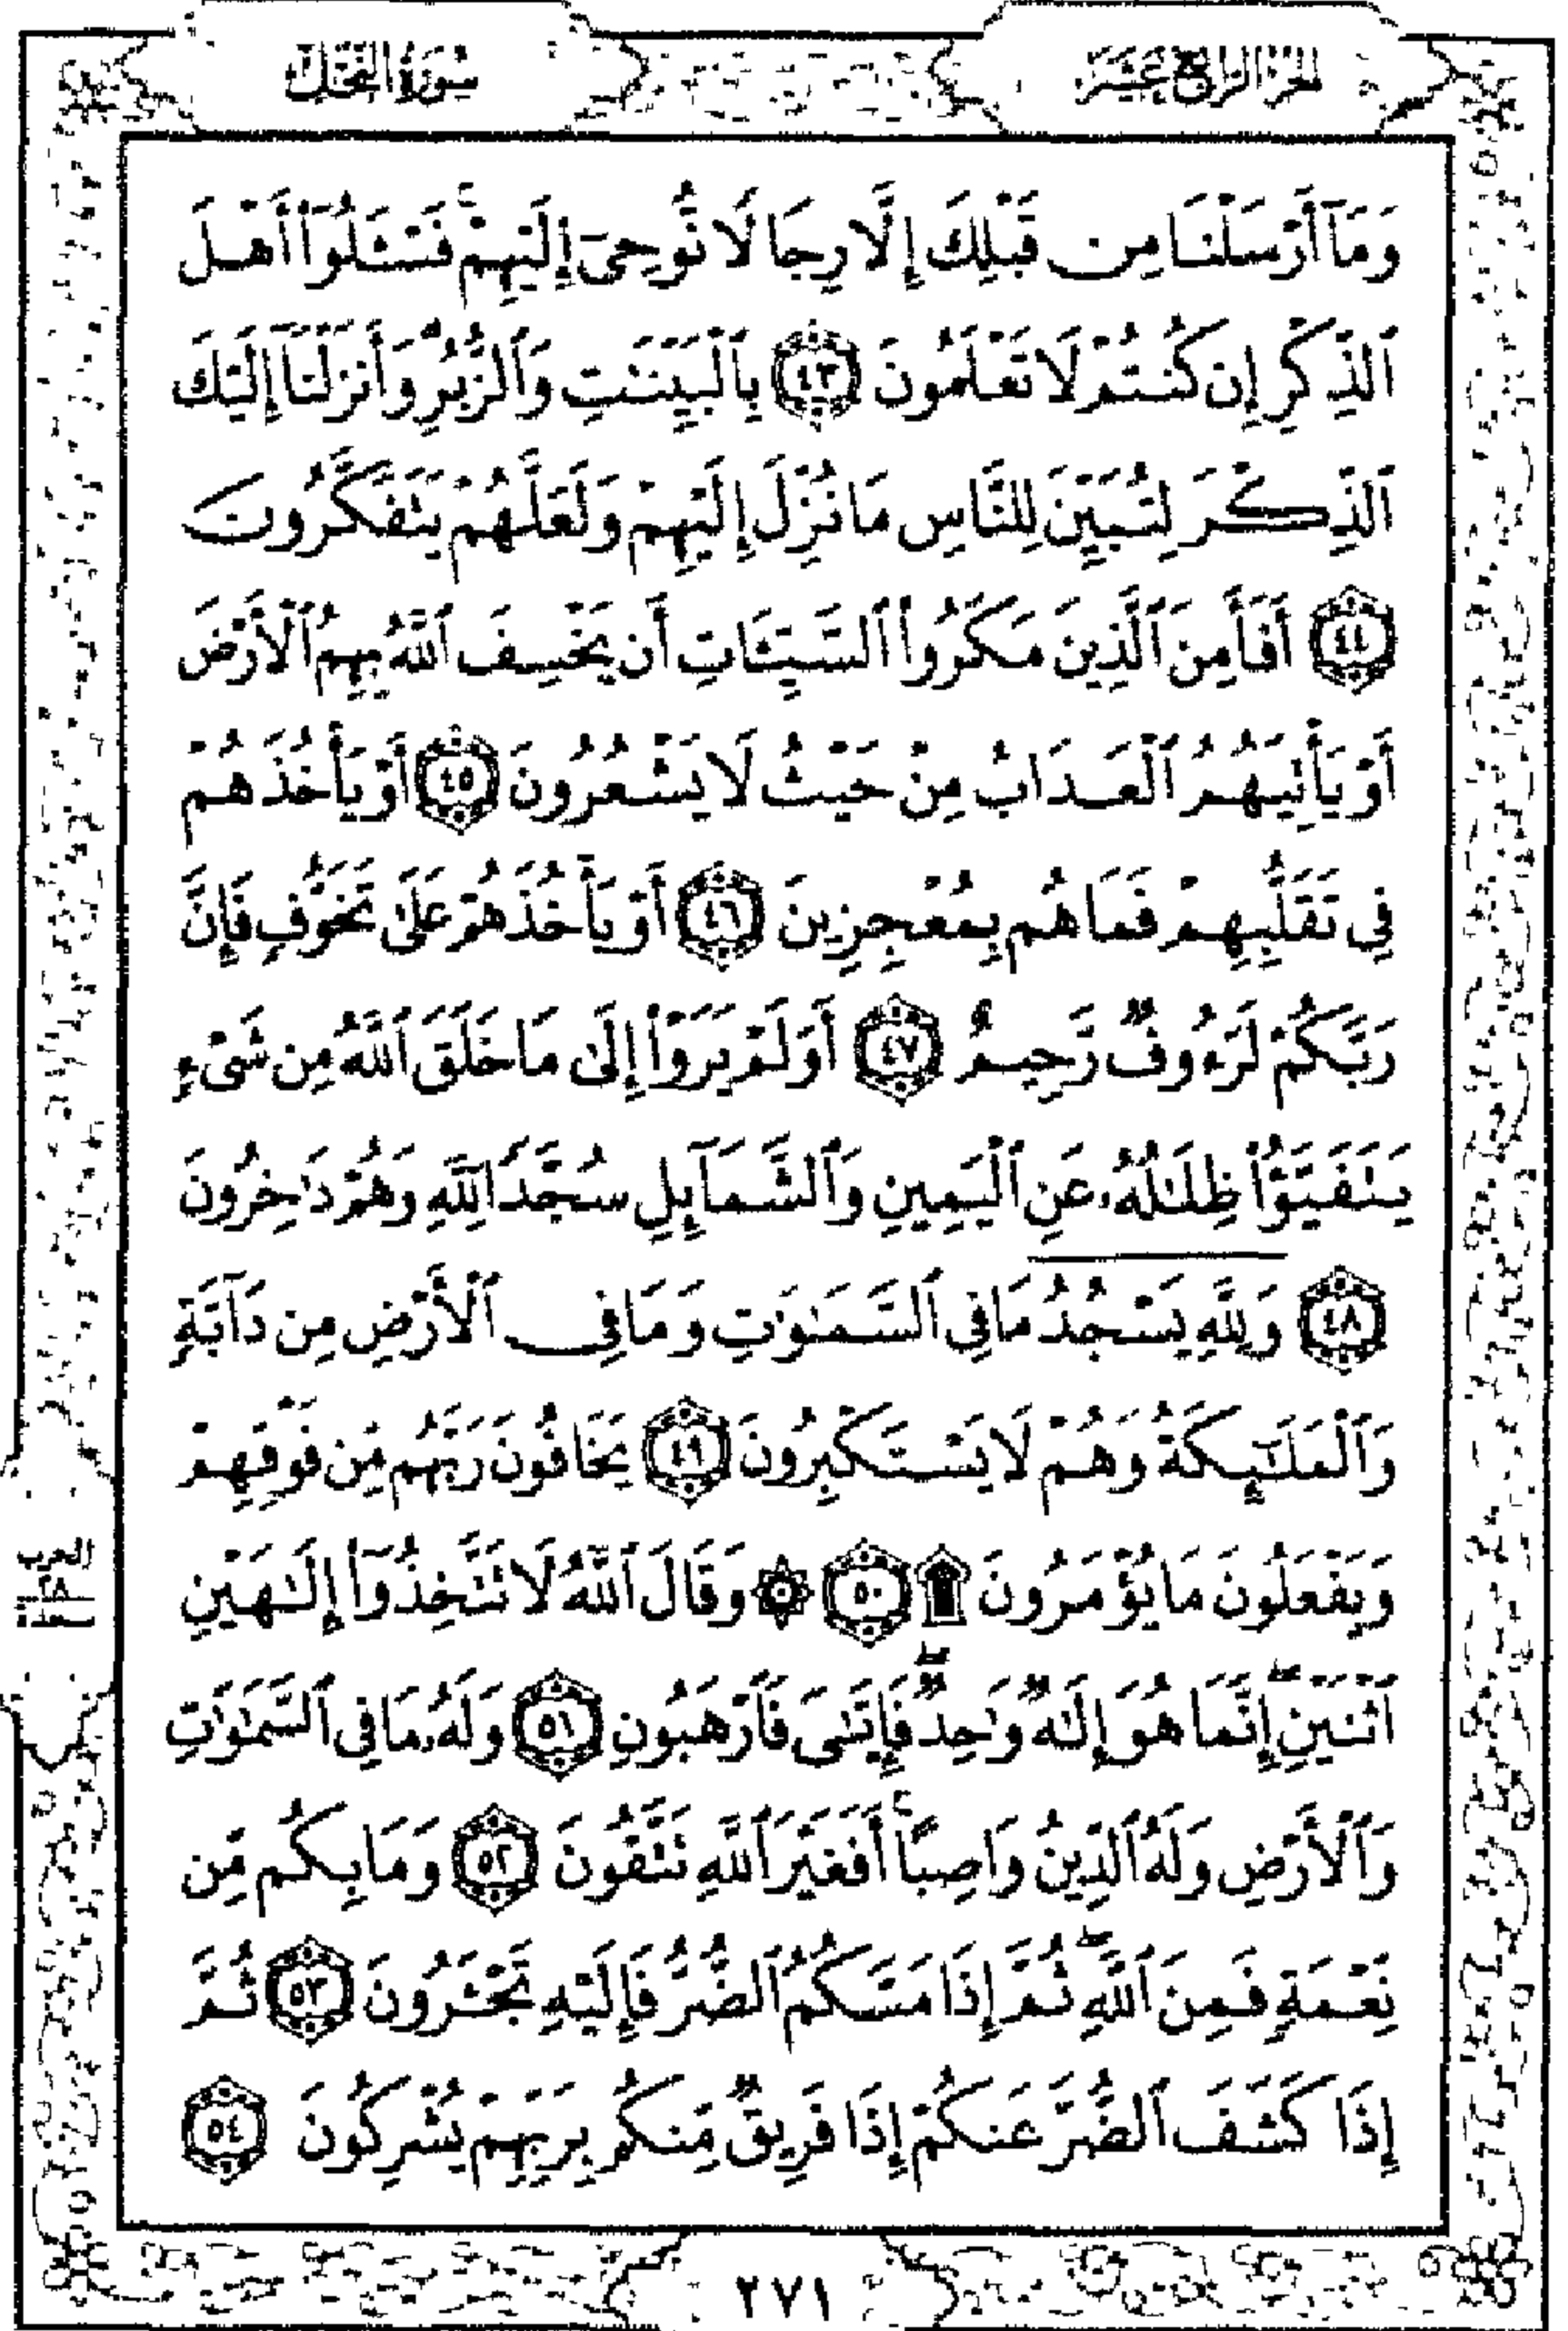 الجزء الرابع عشر
سورة النحل
وَمَآ أَرْسَلْنَا مِن قَبْلِكَ إِلَّا رِجَالًا نُّوحِىٓ إِلَيْهِمْ ۚ فَسْـَٔلُوٓا۟ أَهْلَ
ٱلذِّكْرِ إِن كُنتُمْ لَا تَعْلَمُونَ ٤٣ بِٱلْبَيِّنَٰتِ وَٱلزُّبُرِ ۗ وَأَنزَلْنَآ إِلَيْكَ
ٱلذِّكْرَ لِتُبَيِّنَ لِلنَّاسِ مَا نُزِّلَ إِلَيْهِمْ وَلَعَلَّهُمْ يَتَفَكَّرُونَ
٤٤ أَفَأَمِنَ ٱلَّذِينَ مَكَرُوا۟ ٱلسَّيِّـَٔاتِ أَن يَخْسِفَ ٱللَّهُ بِهِمُ ٱلْأَرْضَ
أَوْ يَأْتِيَهُمُ ٱلْعَذَابُ مِنْ حَيْثُ لَا يَشْعُرُونَ ٤٥ أَوْ يَأْخُذَهُمْ
فِى تَقَلُّبِهِمْ فَمَا هُم بِمُعْجِزِينَ ٤٦ أَوْ يَأْخُذَهُمْ عَلَىٰ تَخَوُّفٍ فَإِنَّ
رَبَّكُمْ لَرَءُوفٌ رَّحِيمٌ ٤٧ أَوَلَمْ يَرَوْا۟ إِلَىٰ مَا خَلَقَ ٱللَّهُ مِن شَىْءٍ
يَتَفَيَّؤُا۟ ظِلَٰلُهُۥ عَنِ ٱلْيَمِينِ وَٱلشَّمَآئِلِ سُجَّدًا لِّلَّهِ وَهُمْ دَٰخِرُونَ
٤٨ وَلِلَّهِ يَسْجُدُ مَا فِى ٱلسَّمَٰوَٰتِ وَمَا فِى ٱلْأَرْضِ مِن دَآبَّةٍ
وَٱلْمَلَٰٓئِكَةُ وَهُمْ لَا يَسْتَكْبِرُونَ ٤٩ يَخَافُونَ رَبَّهُم مِّن فَوْقِهِمْ
وَيَفْعَلُونَ مَا يُؤْمَرُونَ ۩ ٥٠ ۞ وَقَالَ ٱللَّهُ لَا تَتَّخِذُوٓا۟ إِلَٰهَيْنِ
ٱثْنَيْنِ ۖ إِنَّمَا هُوَ إِلَٰهٌ وَٰحِدٌ ۖ فَإِيَّٰىَ فَٱرْهَبُونِ ٥١ وَلَهُۥ مَا فِى ٱلسَّمَٰوَٰتِ
وَٱلْأَرْضِ وَلَهُ ٱلدِّينُ وَاصِبًا ۚ أَفَغَيْرَ ٱللَّهِ تَتَّقُونَ ٥٢ وَمَا بِكُم مِّن
نِّعْمَةٍ فَمِنَ ٱللَّهِ ۖ ثُمَّ إِذَا مَسَّكُمُ ٱلضُّرُّ فَإِلَيْهِ تَجْـَٔرُونَ ٥٣ ثُمَّ
إِذَا كَشَفَ ٱلضُّرَّ عَنكُمْ إِذَا فَرِيقٌ مِّنكُم بِرَبِّهِمْ يُشْرِكُونَ ٥٤
٢٧١